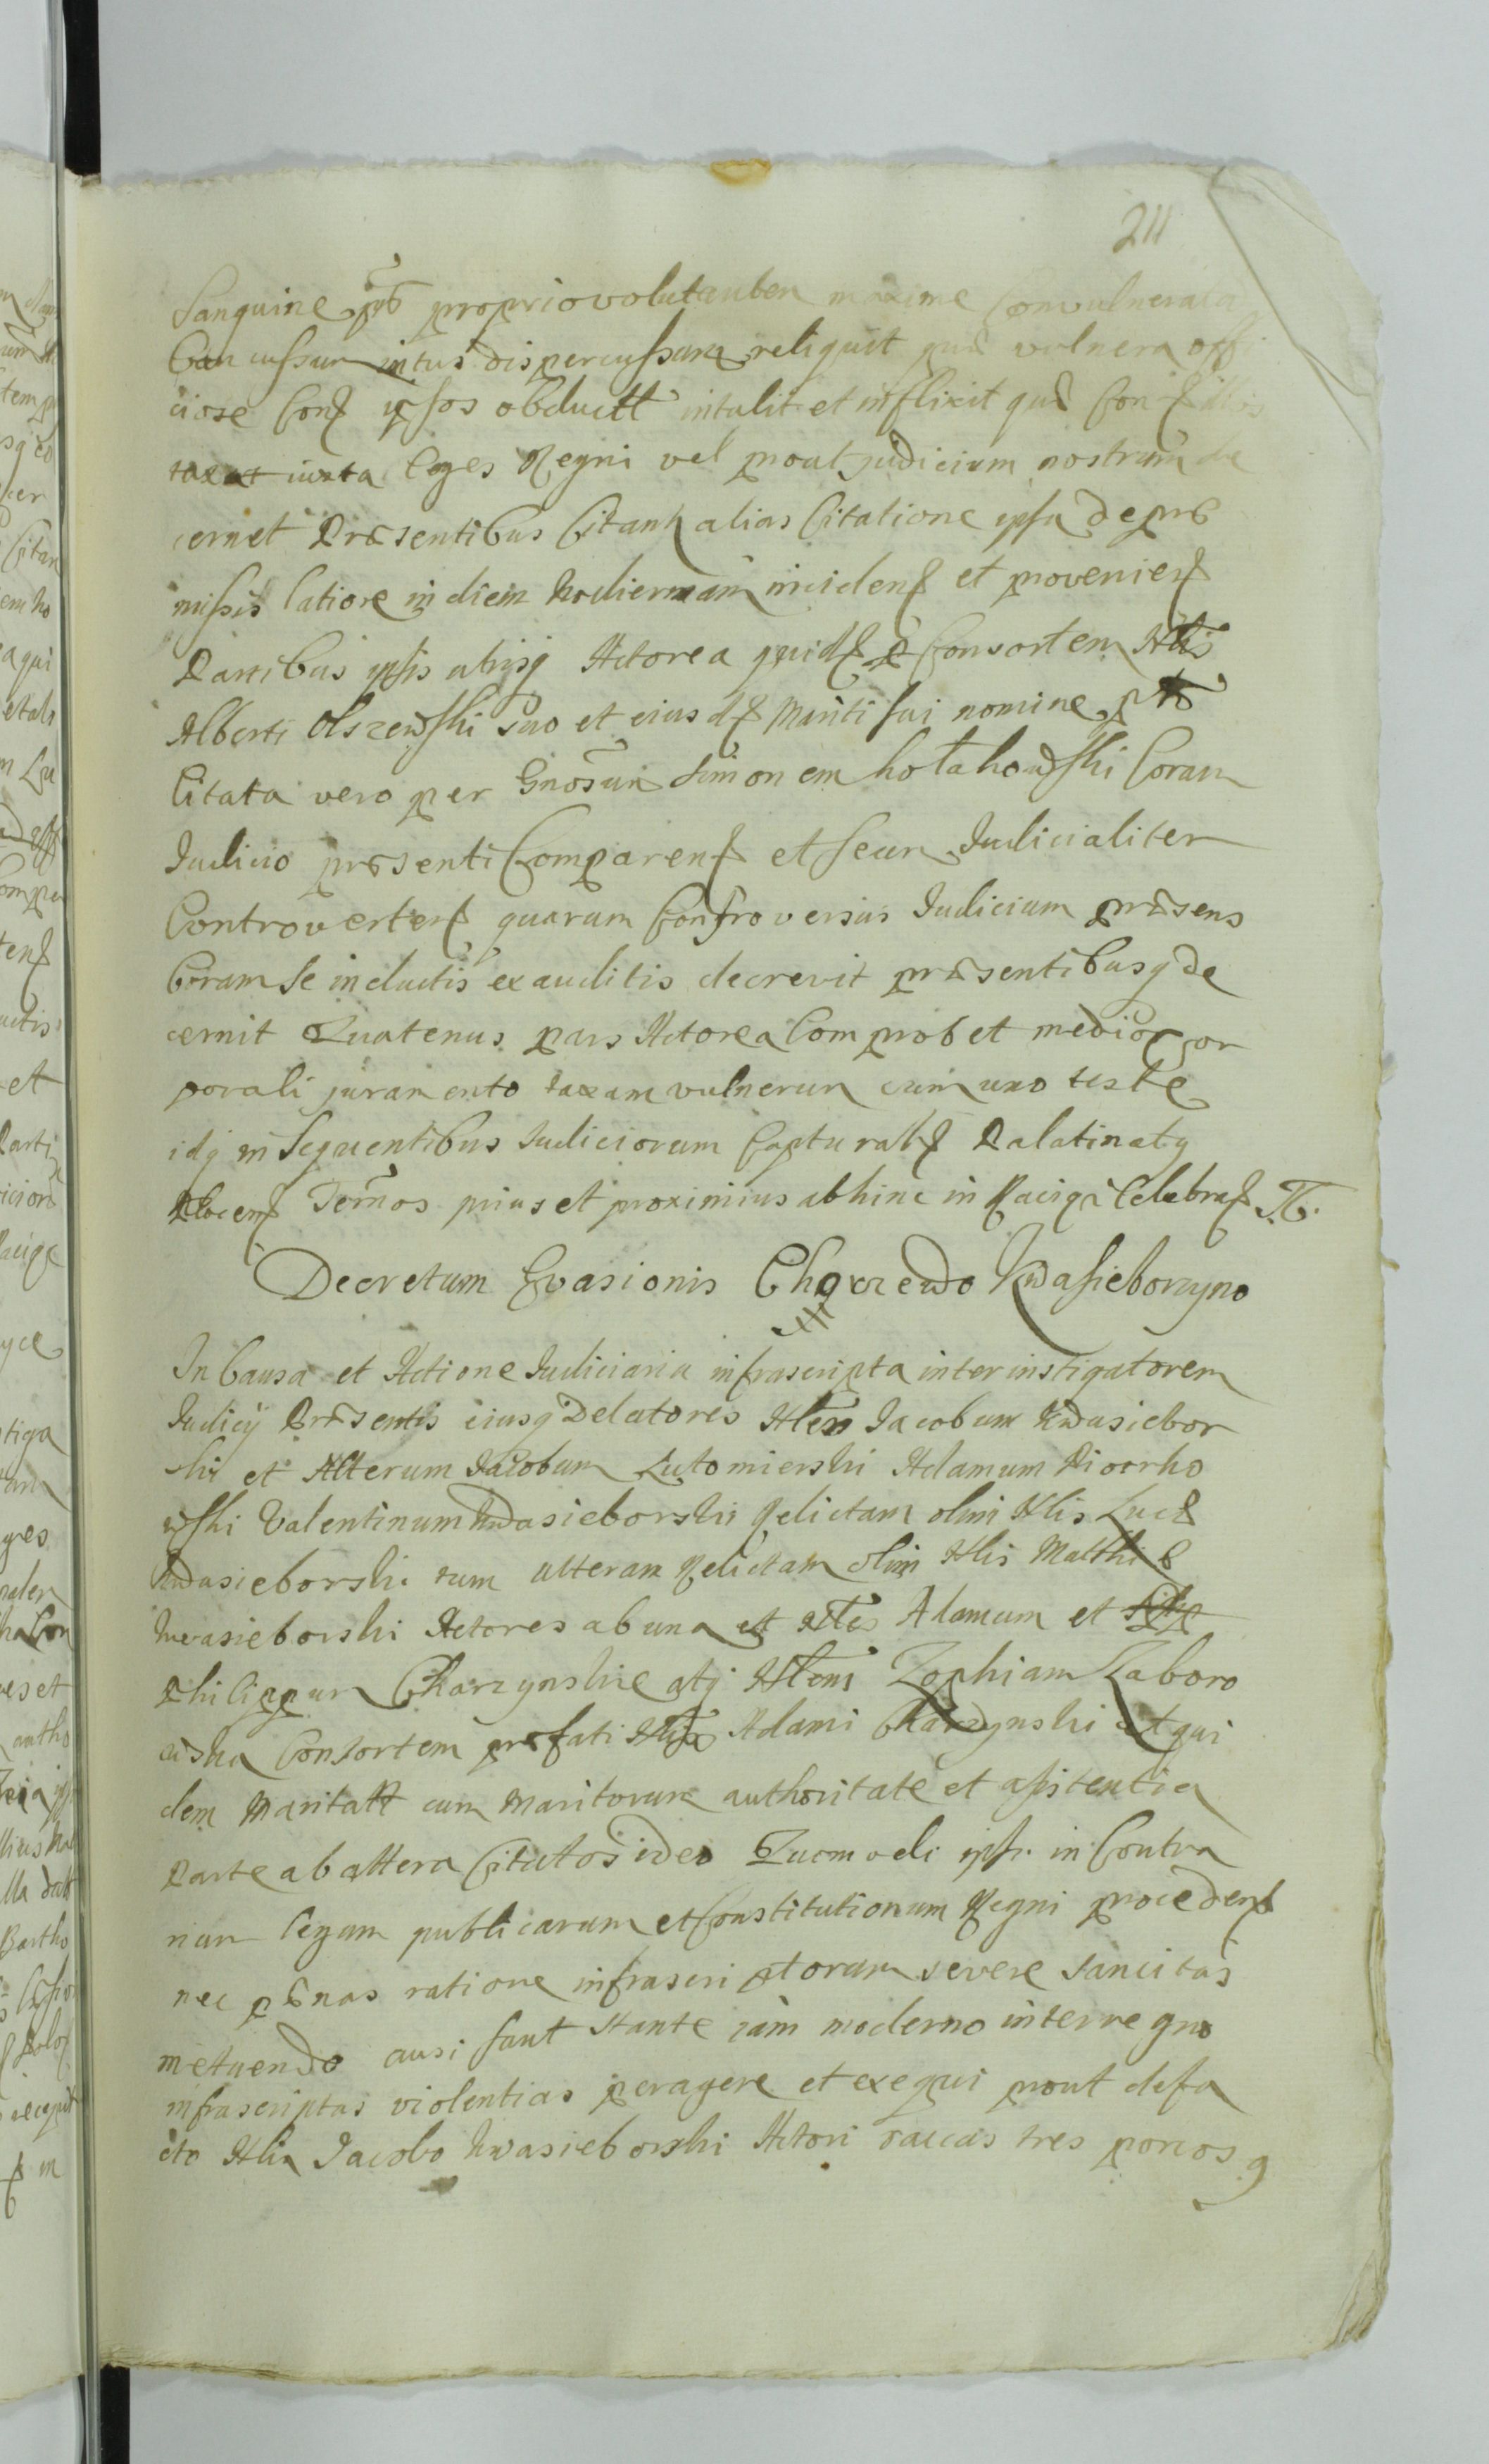 211
Sanguine proprio volutantem maxime Convulnerata
Concussam intus dispercussam reliquit quæ vulnera offi
ciose Conſ ipsos obductt intulit et inflixit quæ
taxat iuxta leges Regni vel prout judicium nostrum de
cernet Præsentibus Citant alias Citatione ipsa de præ
missis latiore in diem hodiernam incidenſ et provenienſ
Partibus ipsis utrisq Actorea quidſ Consortem Nlis
Alberti Olszewski suo et eiusdſ Mariti sui nomine
Citata vero per Gnosum Simonem kołakowski Coram
Iudicio præsenti Comparenſ et secum Iudicialiter
Controvertenſ quarum Controversias Iudicium præsens
Coram se inductis exauditis decrevit præsentibusq de
cernit Quatenus pars Actorea Comprobet medio Cor
porali juramento taxam vulnerum cum uno teste
idq in sequentibus Iudiciorum Capturalſ Palatinatq
Plocenſ Termos prius et proximius abhinc in Raciąż Celebraſ
Decretum Evasionis Charzewo Kwasieborzyno
In Causa et Actione Iudiciaria infrascripta inter instigatorem
Iudicij Præsentis eiusq Delatores Nles Jacobum kwasiebor
ski et Alterum Jacobum Lutomierski Adamum Piorko
wski Valentinum kwasieborski Relictam olim Nlis Lucæ
kwasieborski tum alteram Relictam olim Nlis Matthiæ
kwasieborski Actores ab una et Nles Adamum et
Philippum Charzynskie atq Nlem Zophiam Zaboro
wska Consortem præfati Nlis Adami Charzynski et qui
dem Maritatt cum Maritorum authoritate et assistentia
Parte ab altera Citatos ideo Quomodi ipsi in Contra
rium legum publicarum et Constitutionum Regni procedenſ
nec pœnas ratione infrascriptorum severe sancitas
metuendo ausi sunt stante iam moderno interregno
infrascriptas violentias peragere et exequi prout defa
cto Nli Jacobo kwasieborski Actori vaccas tres porcos